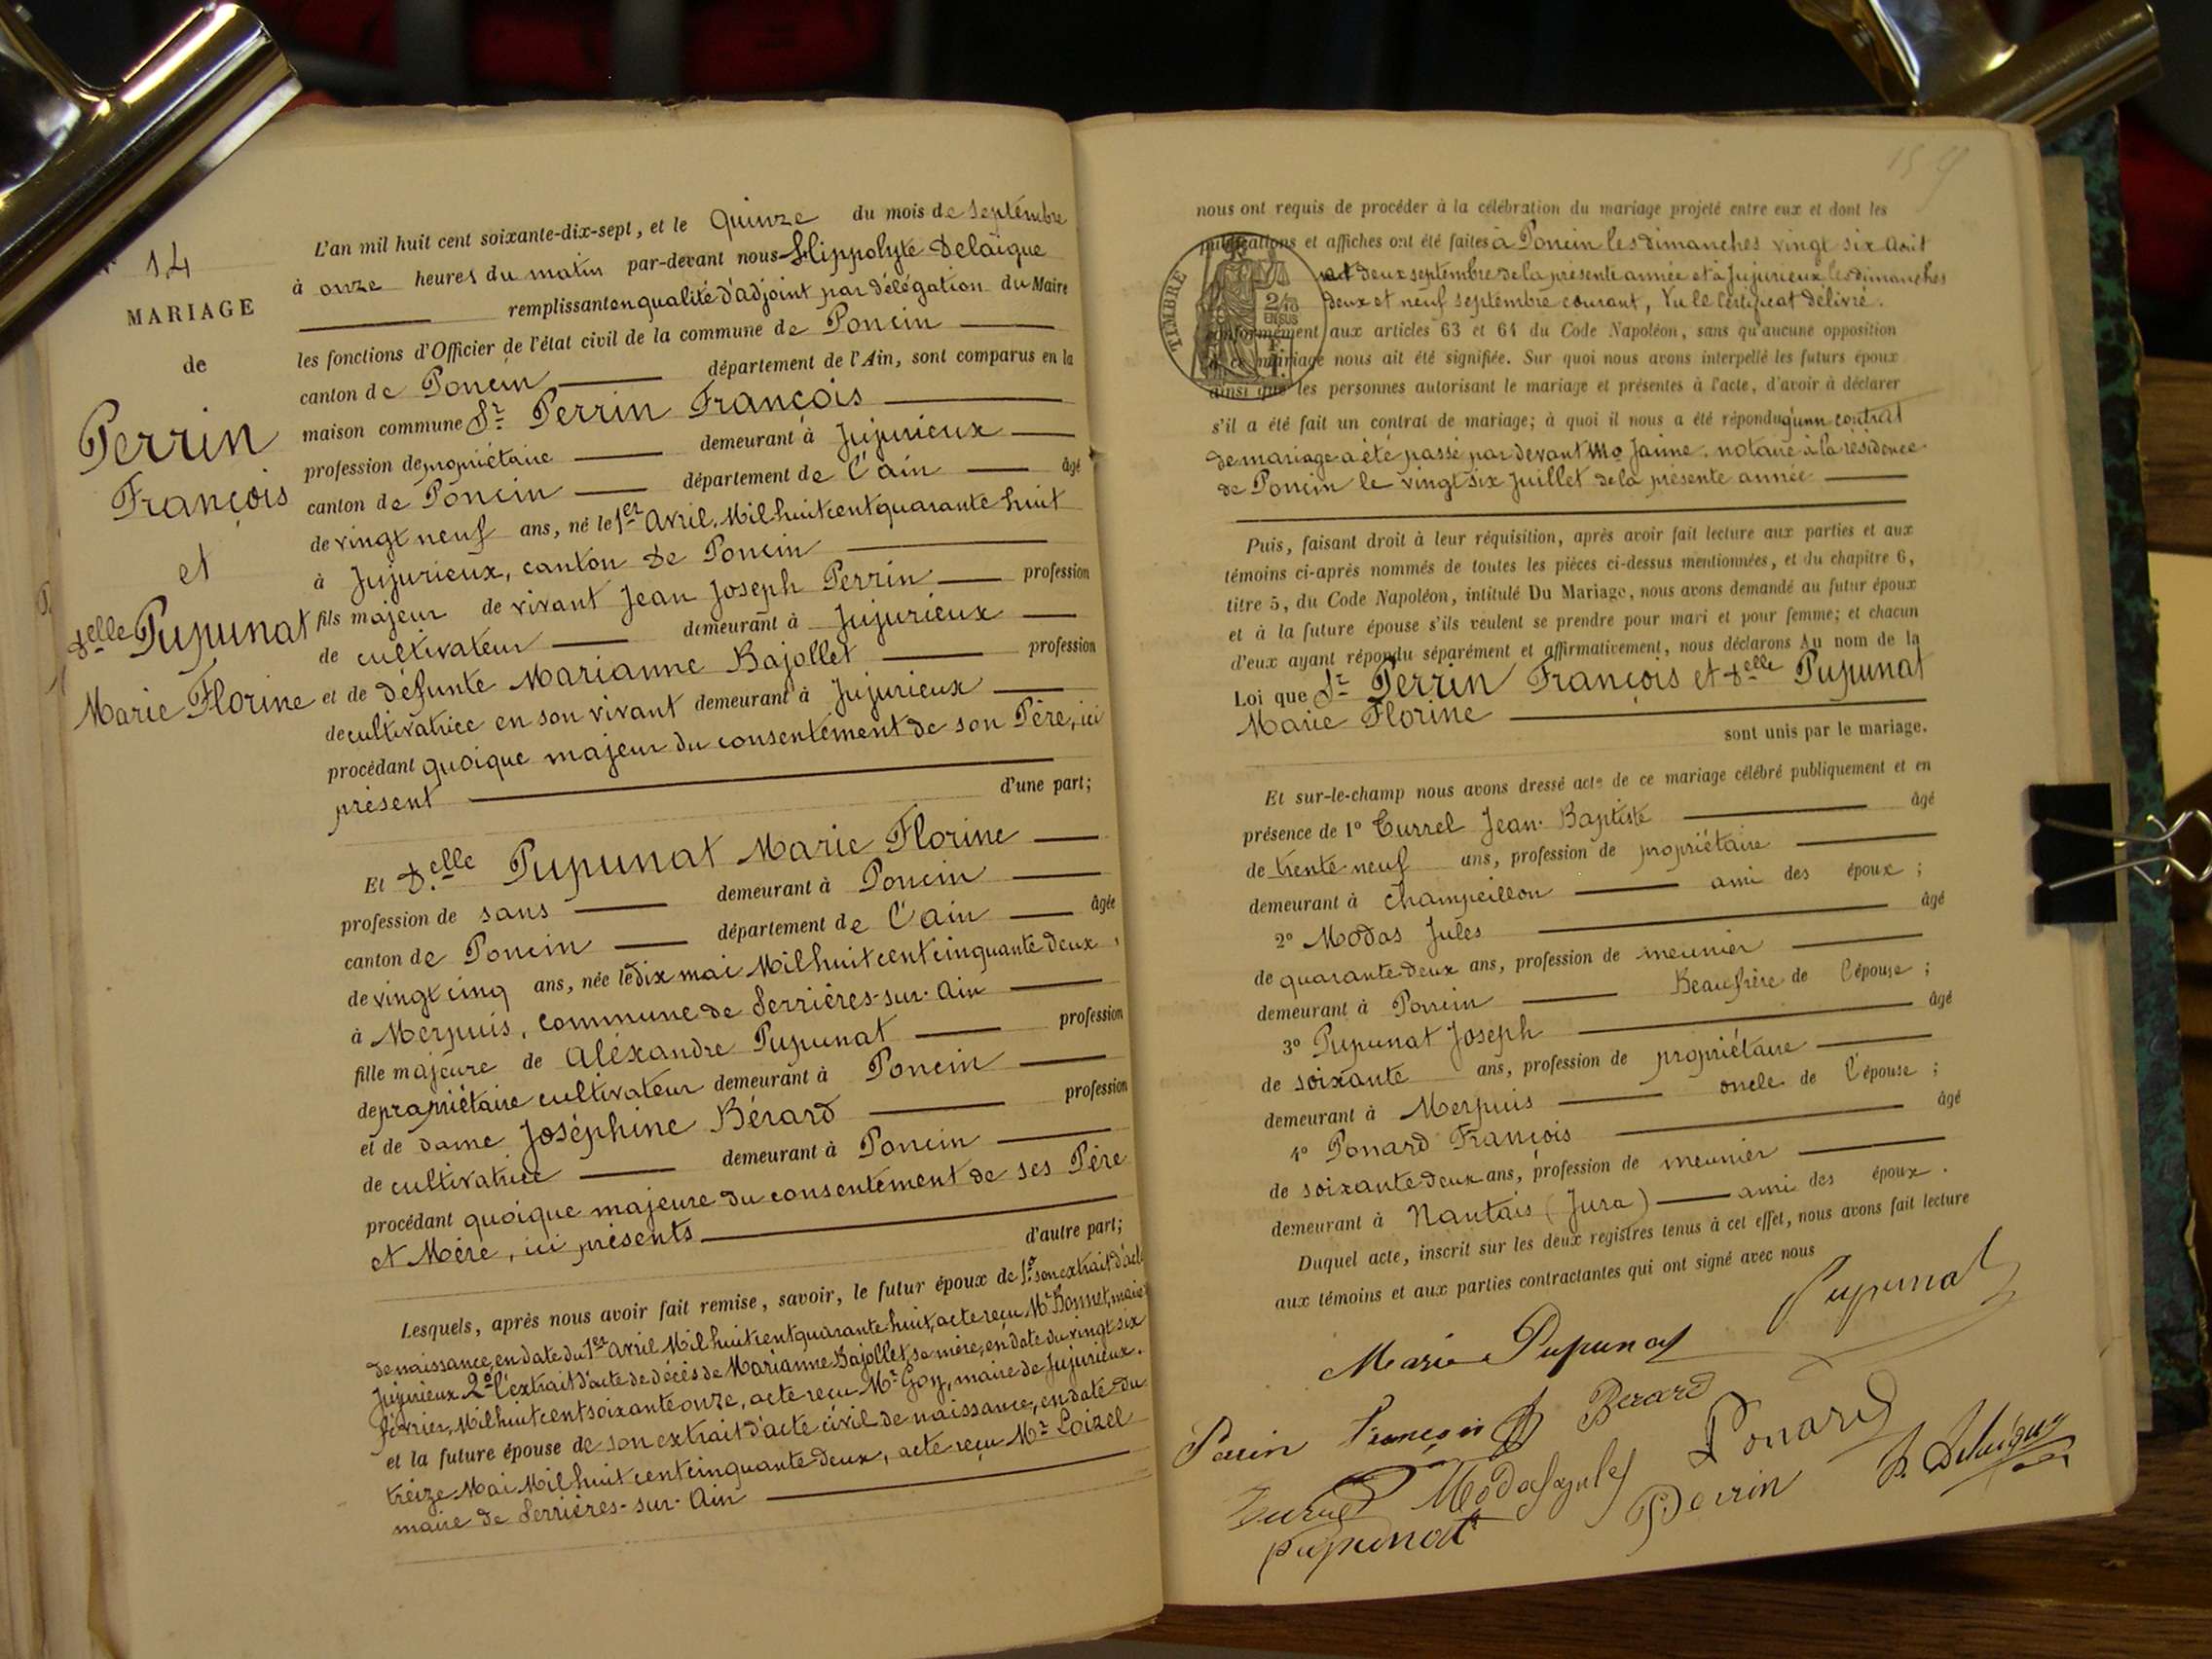 N° 14
MARIAGE
de
Perrin
François
et
Delle Pupunat
Marie Florine
L'an mil huit cent soixante-dix-sept, et le Quinze du mois de Septembre
à onze heures du matin par-devant nous Hippolyte Delaigue
remplissant en qualité d'adjoint par délégation du Maire
les fonctions d'Officier de l'état civil de la commune de Poncin
canton de Poncin département de l'Ain, sont comparus en la
maison commune Sr Perrin François
profession de propriétaire demeurant à Jujurieux
canton de Poncin département de l'ain âgé
de vingt neuf ans, né le 1er Avril, Mil huit cent quarante huit
à Jujurieux, canton de Poncin
fils majeur de vivant Jean Joseph Perrin profession
de cultivateur demeurant à Jujurieux
et de défunte Marianne Bajollet profession
de cultivatrice en son vivant demeurant à Jujurieux
procédant quoique majeur du consentement de son Père, ici
présent d'une part;
Et Delle Pupunat Marie Florine
profession de sans demeurant à Poncin
canton de Poncin département de l'ain âgée
de vingt cinq ans, née le dix mai Mil huit cent cinquante deux,
à Merpuis, commune de Serrières-sur-Ain
fille majeure de Aléxandre Pupunat profession
de propriétaire cultivateur demeurant à Poncin
et de dame Joséphine Bérard profession
de cultivatrice demeurant à Poncin
procédant quoique majeure du consentement de ses Père
et Mère, ici présents d'autre part;
Lesquels, après nous avoir fait remise, savoir, le futur époux de 1° son extrait d'acte
de naissance, en date du 1er avril Mil huit cent quarante huit, acte reçu Mr Bonnet, maire
Jujurieux 2° l'extrait d'acte de décès de Marianne Bajollet, sa mère, en date du vingt six
février, Mil huit cent soixante onze, acte reçu Mr Goy, maire de Jujurieux.
et la future épouse de son extrait d'acte civil de naissance, en date du
treize Mai Mil huit cent cinquante-deux, acte reçu Mr Loizel
maire de Serrières-sur-Ain
nous ont requis de procéder à la célébration du mariage projeté entre eux et dont les
publications et affiches ont été faites à Poncin les dimanches vingt six Août
et deux septembre de la présente année et à Jujurieux les dimanches
deux et neuf septembre courant, Vu le certificat délivré.
conformément aux articles 63 et 64 du Code Napoléon, sans qu'aucune opposition
à ce mariage nous ait été signifiée. Sur quoi nous avons interpellé les futurs époux
ainsi que les personnes autorisant le mariage et présentes à l'acte, d'avoir à déclarer
s'il a été fait un contrat de mariage; à quoi il nous a été répondu qu'un contrat
de mariage a été passé par devant Me Janine, notaire à la résidence
de Poncin le vingt six Juillet de la présente année
TIMBRE
2/10
EN SUS
Puis, faisant droit à leur réquisition, après avoir fait lecture aux parties et aux
témoins ci-après nommés de toutes les pièces ci-dessus mentionnées, et du chapitre 6,
titre 5, du Code Napoléon, intitulé Du Mariage, nous avons demandé au futur époux
et à la future épouse s'ils veulent se prendre pour mari et pour femme; et chacun
d'eux ayant répondu séparément et affirmativement, nous déclarons Au nom de la
Loi que Sr Perrin François et Delle Pupunat
Marie Florine
sont unis par le mariage.
Et sur-le-champ nous avons dressé acte de ce mariage célébré publiquement et en
présence de 1° Currel Jean-Baptiste âgé
de trente-neuf ans, profession de propriétaire
demeurant à Champeillon ami des époux;
2° Modas Jules âgé
de quarante-deux ans, profession de meunier
demeurant à Poncin Beaufrère de l'épouse;
3° Pupunat Joseph âgé
de soixante ans, profession de propriétaire
demeurant à Merpuis oncle de l'épouse;
4° Ponard François âgé
de soixante deux ans, profession de meunier
demeurant à Nantais (Jura) ami des époux.
Duquel acte, inscrit sur les deux registres tenus à cet effet, nous avons fait lecture
aux témoins et aux parties contractantes qui ont signé avec nous
Pupunat
Marie Pupunat
Perrin François Berard
Ponard
Modas Jules Perrin H. Delaigue
Pupunat